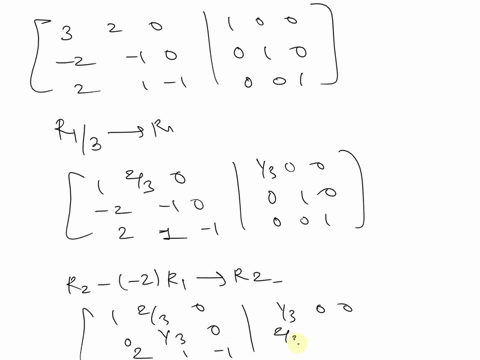 3 2 0 | 1 0 0
-2 -1 0 | 0 1 0
2 1 -1 | 0 0 1
R1/3 → R1
1 2/3 0 | 1/3 0 0
-2 -1 0 | 0 1 0
2 1 -1 | 0 0 1
R2 - (-2) R1 → R2
1 2/3 0 | 1/3 0 0
0 1/3 0 | 2/
2 1 -1